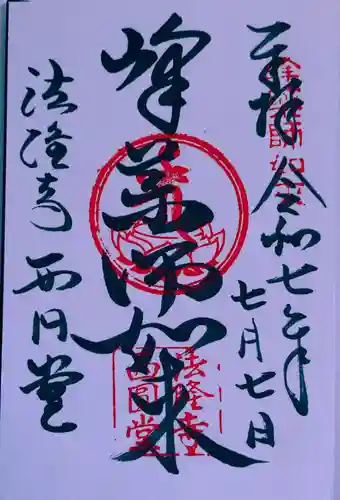 奉拝 令和七年
七月七日
峰薬師如来
法隆寺 西円堂
法隆寺
西圓堂